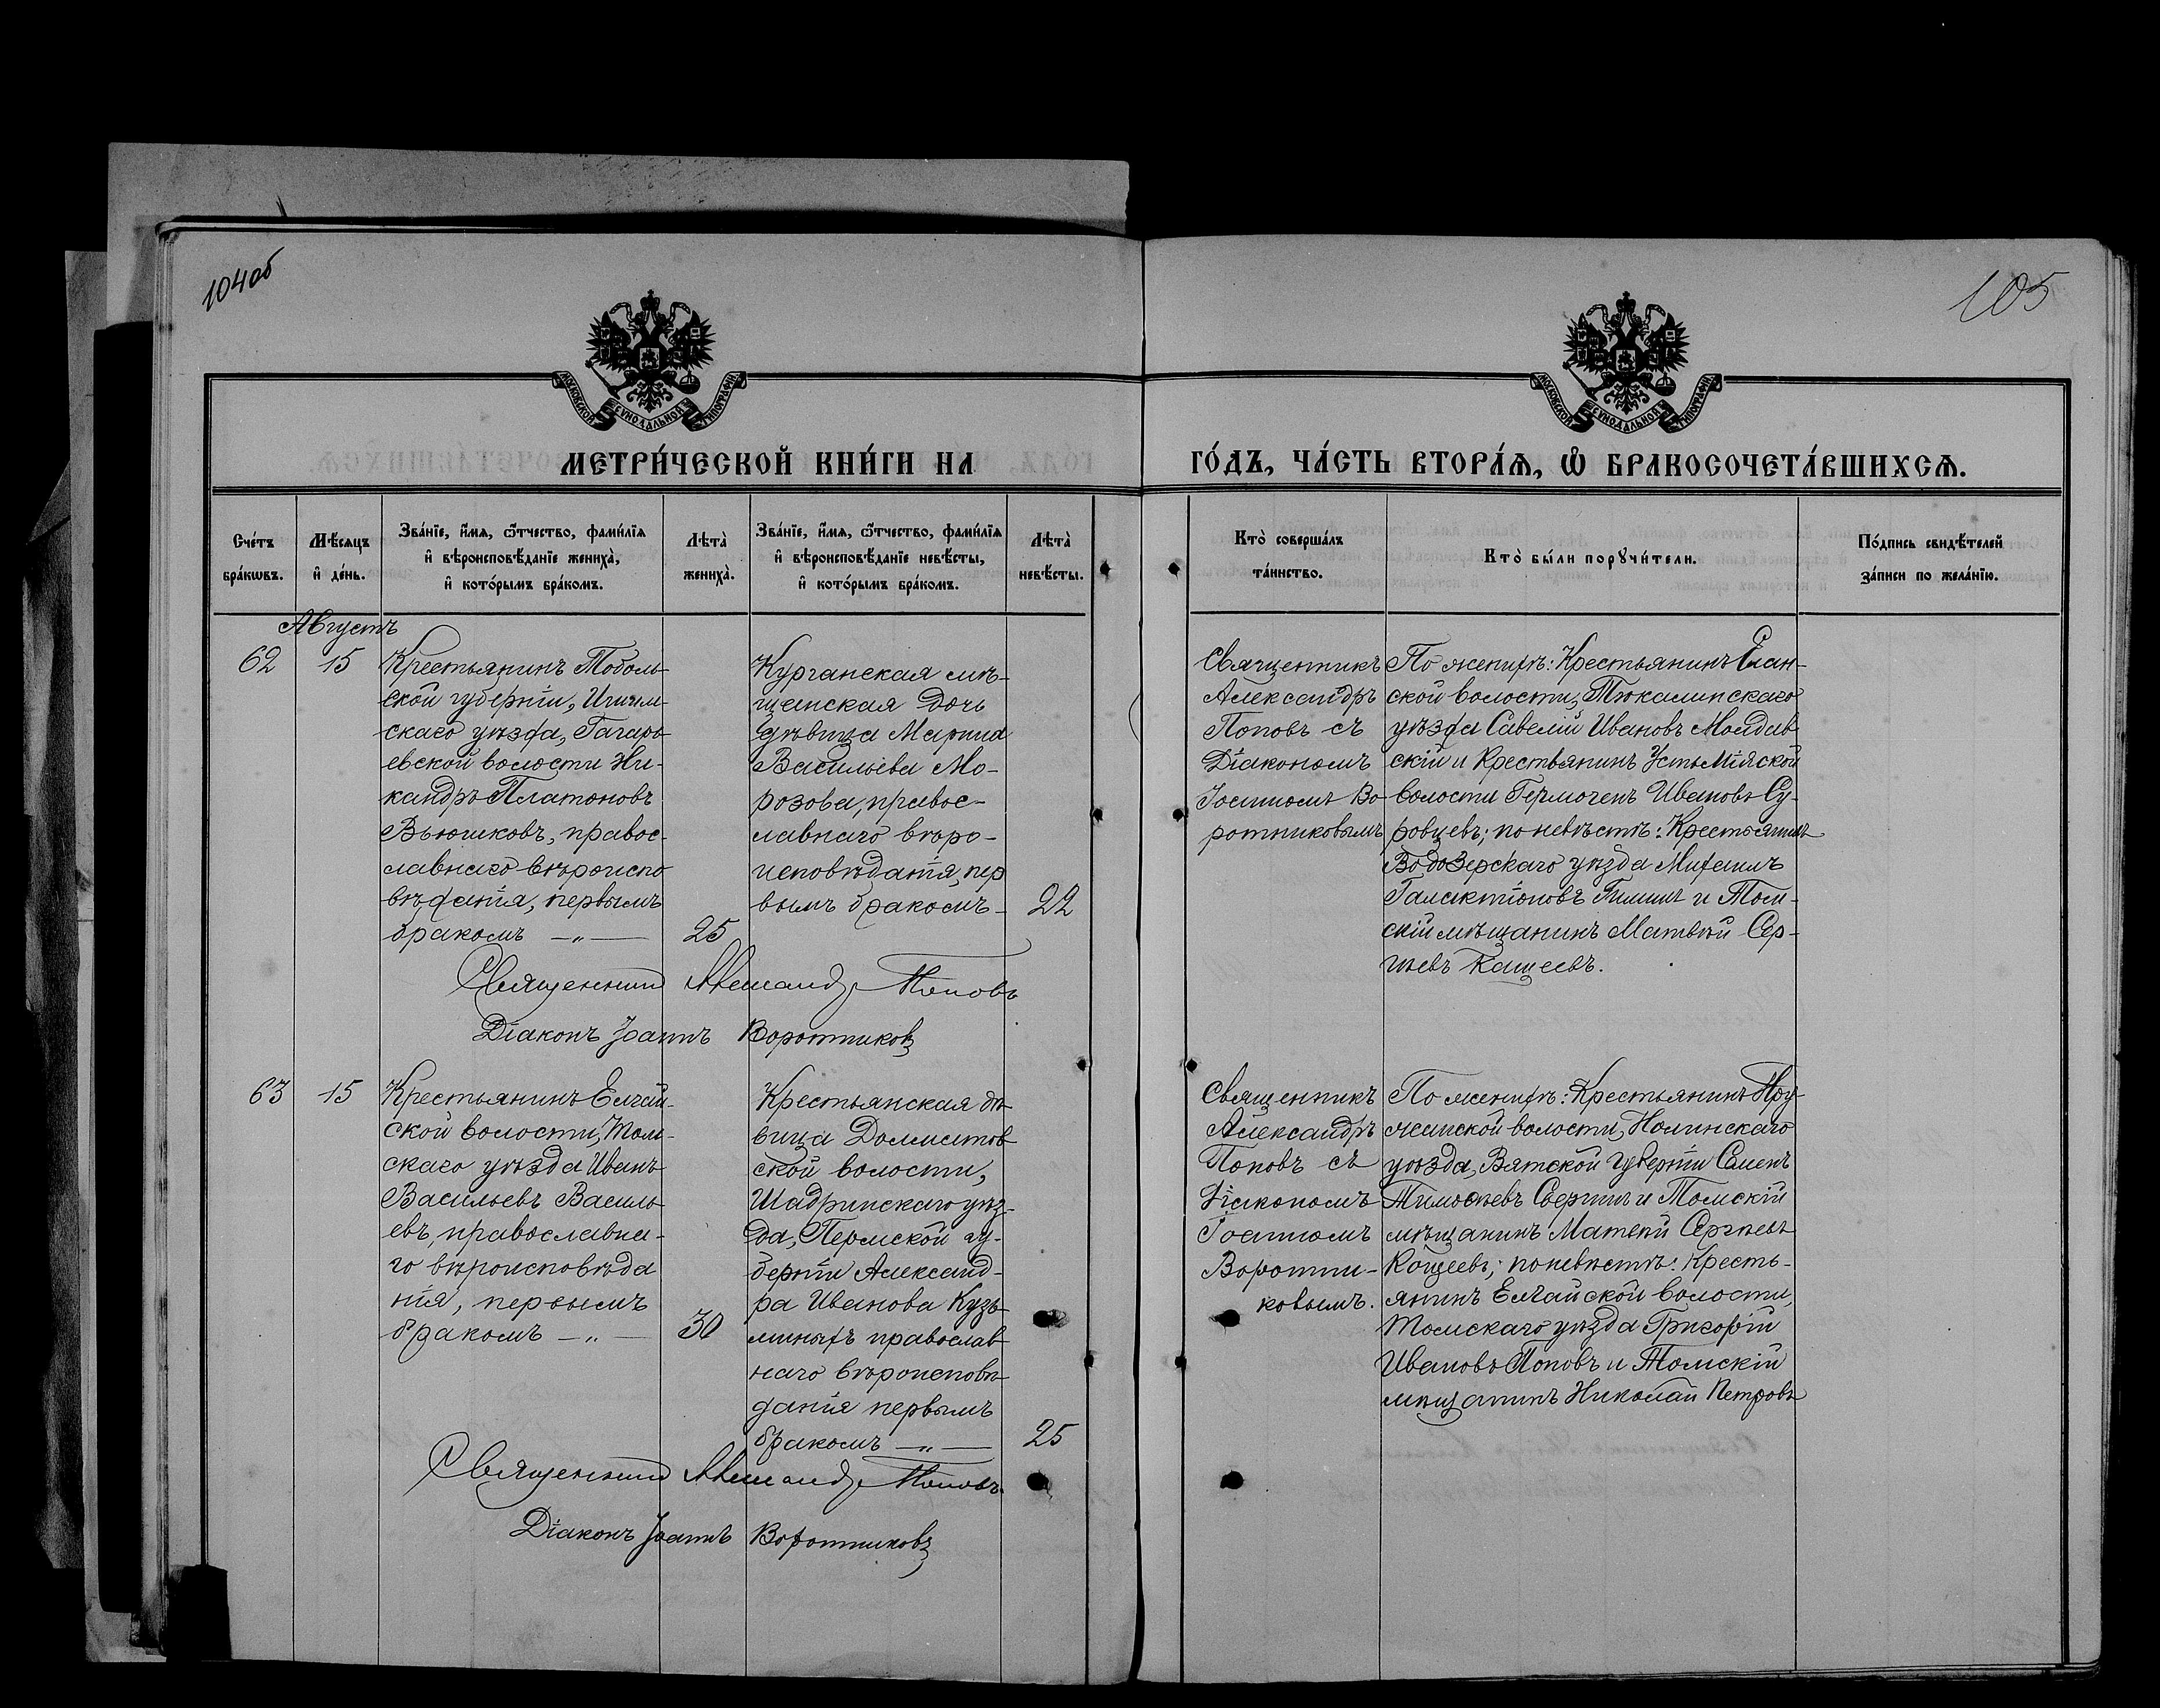 104об
105
МОСКОВСКОЙ СѴНОДАЛЬНОЙ ТИПОГРАФІИ
МОСКОВСКОЙ СѴНОДАЛЬНОЙ ТИПОГРАФІИ
МЕТРИ́ЧЕСКОЙ КНИ́ГИ НА
ГО́ДЪ, ЧА́СТЬ ВТОРА́Ѧ, Ѽ БРАКОСОЧЕТА́ВШИХСѦ.
Сче́тъ
бра́кѡвъ.
Мѣ́сяцъ
и҆ де́нь.
Зва́нїе, и҆́мѧ, ѻ҆́тчество, фами́лїѧ
и҆ вѣроисповѣ́данїе жениха̀,
и҆ кото́рымъ бра́комъ.
Лѣта̀
жениха̀.
Зва́нїе, и҆́мѧ, ѻ҆́тчество, фами́лїѧ
и҆ вѣроисповѣ́данїе невѣ́сты,
и҆ кото́рымъ бра́комъ.
Лѣта̀
невѣ́сты.
Кто̀ соверша́лъ
та́инство.
Кто̀ бы́ли порꙋчи́тели.
По́дпись свидѣ́телей
за́писи по жела́нїю.
Августъ
62
15
Крестьянинъ Тоболь-
ской губерніи, Ишим-
скаго уѣзда, Гагарь
евской волости Ни-
кандръ Платоновъ
Вьюшковъ, правос-
лавнаго вѣроиспо
вѣданія, первымъ
бракомъ —„—
25
Курганская мѣ-
щанская дочь
дѣвица Марина
Васильева Мо-
розова, правос-
лавнаго вѣро-
исповѣданія, пер
вымъ бракомъ-
22
Священникъ
Александръ
Поповъ съ
Діакономъ
Іоанномъ Во
ротниковымъ
По женихѣ: Крестьянинъ Елан-
ской волости, Тюкалинскаго
уѣзда Савелій Ивановъ Молдав
скій и Крестьянинъ
волости Гермогенъ Ивановъ Су-
ровцевъ; по невѣстѣ: Крестьянинъ
уѣзда Михаилъ
Галактіоновъ и Том-
скій мѣщанинъ Матвѣй Сер-
гѣевъ Кащеевъ.
Священникъ Александръ Поповъ
Діаконъ Іоаннъ Воротниковъ
63
15
Крестьянинъ Елгай-
ской волости, Том-
скаго уѣзда Иванъ
Васильевъ Василь
евъ, православна-
го вѣроисповѣда
нія, первымъ
бракомъ —„—
30
Крестьянская дѣ
вица Долматов
ской волости,
Шадринскаго уѣз-
да, Пермской гу-
берніи Александ-
ра Иванова Кузь-
миныхъ православ
наго вѣроисповѣ-
данія первымъ
бракомъ —„—
25
Священникъ
Александръ
Поповъ съ
Діакономъ
Іоанномъ
Воротни-
ковымъ.
По женихѣ: Крестьянинъ
волости, Нолинскаго
уѣзда, Вятской Губерніи Семенъ
Тимофѣевъ и Томскій
мѣщанинъ Матвѣй Сергѣевъ
Кощеевъ; по невѣстѣ: Кресть-
янинъ Елгайской волости,
Томскаго уѣзда Григорій
Ивановъ Поповъ и Томскій
мѣщанинъ Николай Петровъ
Священникъ Александръ Поповъ.
Діаконъ Іоаннъ Воротниковъ